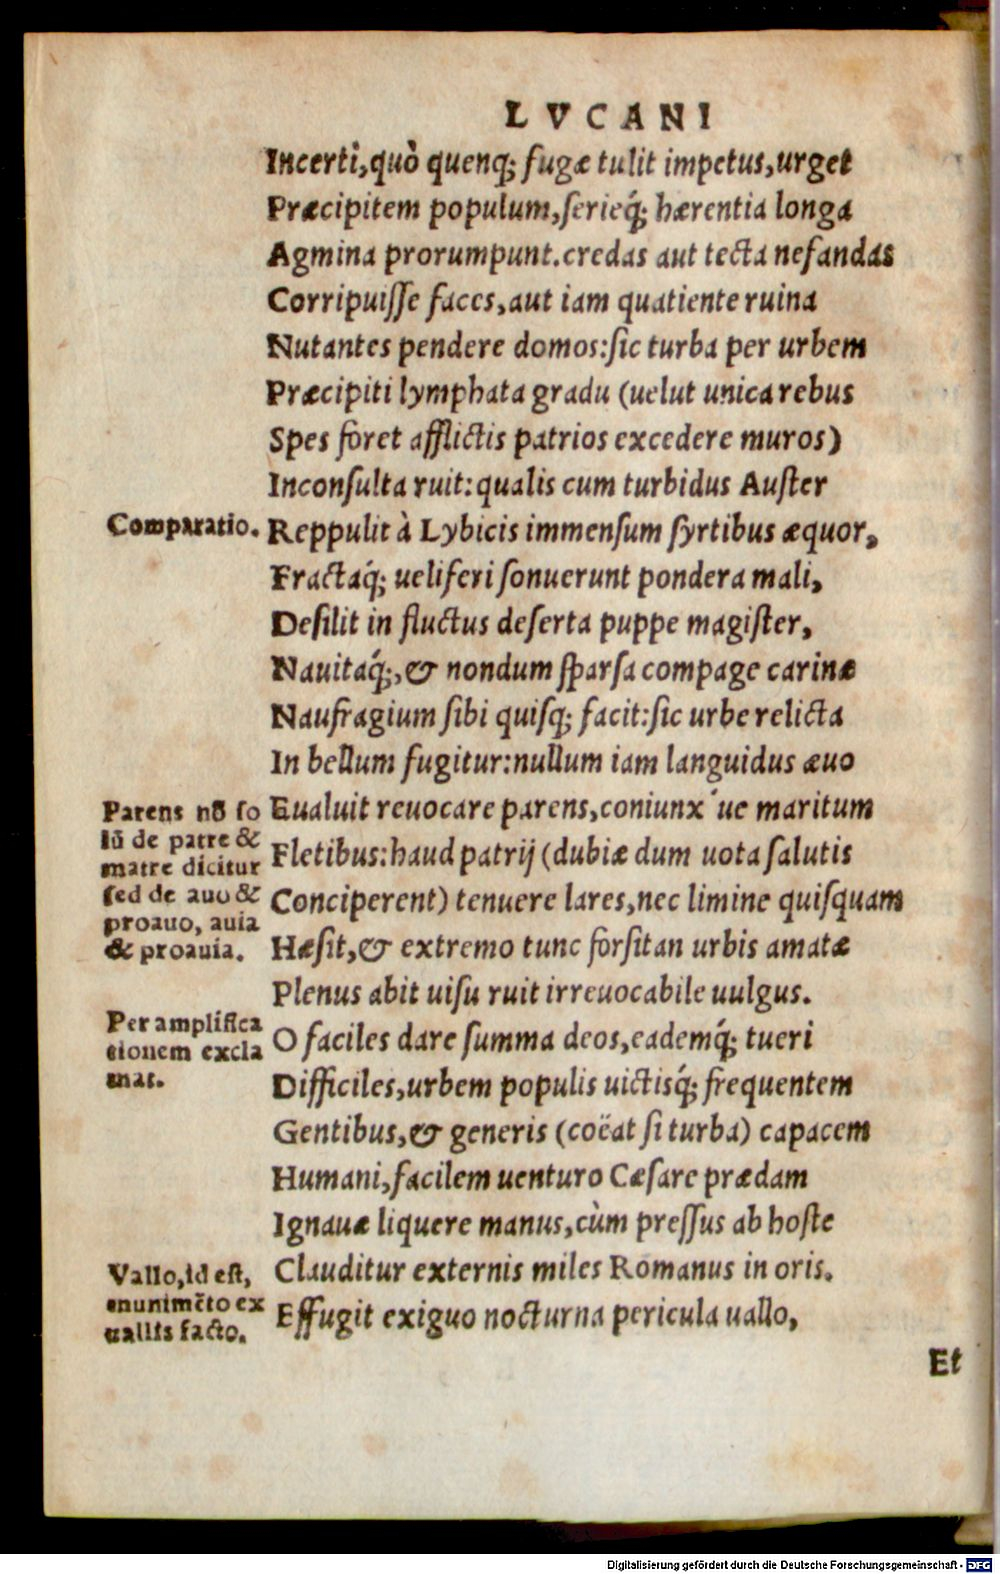 LVCANI
Incerti, quò quenq; fugæ tulit impetus, urget
Præcipitem populum, serieq́; hærentia longa
Agmina prorumpunt. credas aut tecta nefandas
Corripuisse faces, aut iam quatiente ruina
Nutantes pendere domos: sic turba per urbem
Præcipiti lymphata gradu (uelut unica rebus
Spes foret afflictis patrios excedere muros)
Inconsulta ruit: qualis cum turbidus Auster
Comparatio.
Reppulit à Lybicis immensum syrtibus æquor,
Fractaq́; ueliferi sonuerunt pondera mali,
Desilit in fluctus deserta puppe magister,
Nauitaq́;, & nondum sparsa compage carinæ
Naufragium sibi quisq; facit: sic urbe relicta
In bellum fugitur: nullum iam languidus æuo
Parens nõ so
lũ de patre &
matre dicitur
sed de auo &
proauo, auia
& proauia.
Eualuit reuocare parens, coniunx ue maritum
Fletibus: haud patrij (dubiæ dum uota salutis
Conciperent) tenuere lares, nec limine quisquam
Hæsit, & extremo tunc forsitan urbis amatæ
Plenus abit uisu ruit irreuocabile uulgus.
Per amplifica
tionem excla
mat.
O faciles dare summa deos, eademq́; tueri
Difficiles, urbem populis uictisq́; frequentem
Gentibus, & generis (coëat si turba) capacem
Humani, facilem uenturo Cæsare prædam
Ignauæ liquere manus, cùm pressus ab hoste
Clauditur externis miles Romanus in oris.
Vallo, id est,
munimẽto ex
uallis facto.
Effugit exiguo nocturna pericula uallo,
Et
Digitalisierung gefördert durch die Deutsche Forschungsgemeinschaft - DFG